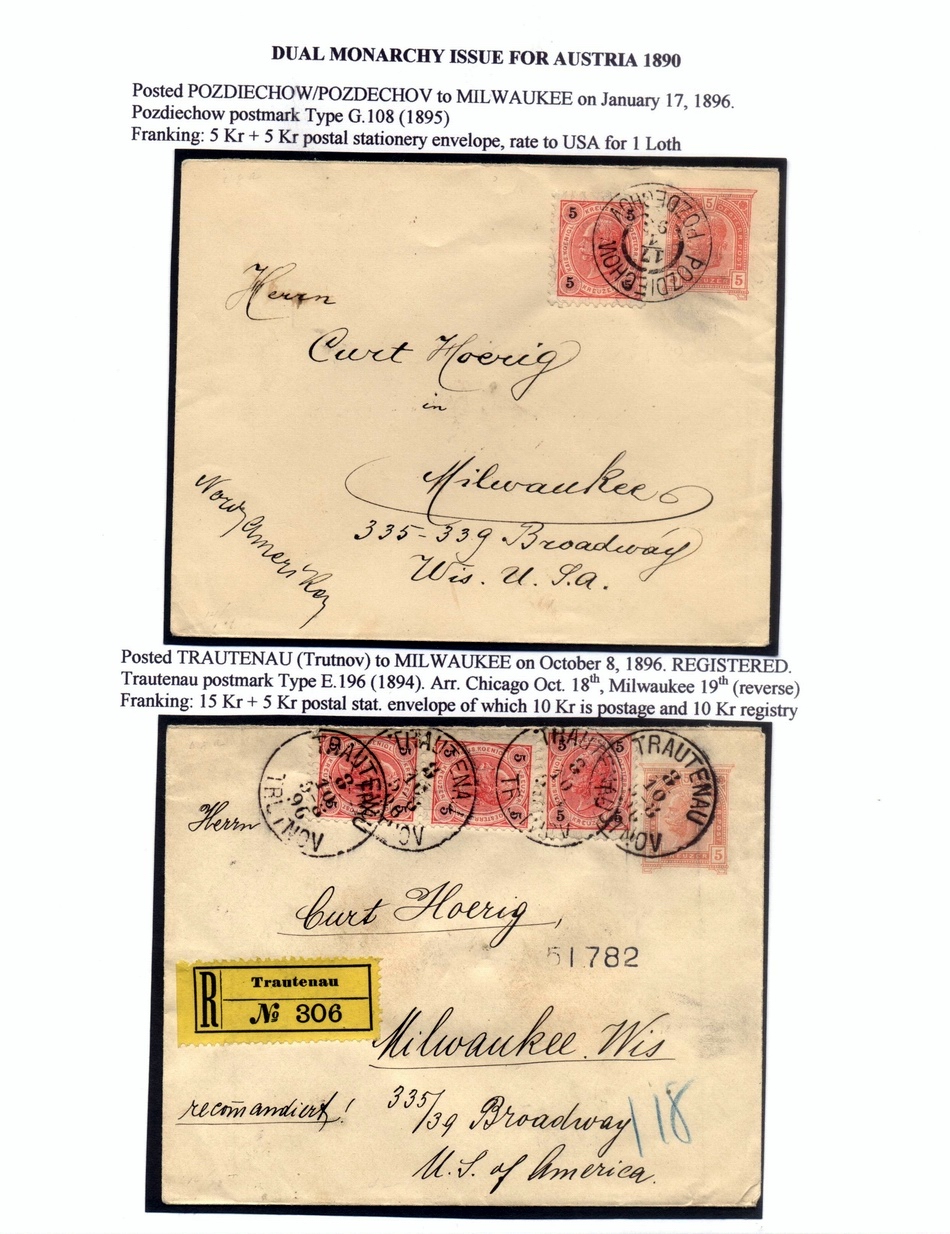 DUAL MONARCHY ISSUE FOR AUSTRIA 1890
Posted POZDIECHOW/POZDECHOV to MILWAUKEE on January 17, 1896.
Pozdiechow postmark Type G.108 (1895)
Franking: 5 Kr + 5 Kr postal stationery envelope, rate to USA for 1 Loth
5 5
5
5
POZDECHOV
17
1
POZDIECHOW
KREUZER 5
Herrn
Curt Hoerig
in
Milwaukee
335-339 Broadway
Wis. U. S. a.
Nord Amerika
Posted TRAUTENAU (Trutnov) to MILWAUKEE on October 8, 1896. REGISTERED.
Trautenau postmark Type E.196 (1894). Arr. Chicago Oct. 18th, Milwaukee 19th (reverse)
Franking: 15 Kr + 5 Kr postal stat. envelope of which 10 Kr is postage and 10 Kr registry
TRAUTENAU
8
10
96
TRUTNOV
TRAUTENAU
8
10
KREUZER 5
Herrn
Curt Hoerig,
51782
R
Trautenau
№ 306
Milwaukee. Wis
recomandiert!
335/39 Broadway
118
U. S. of America.